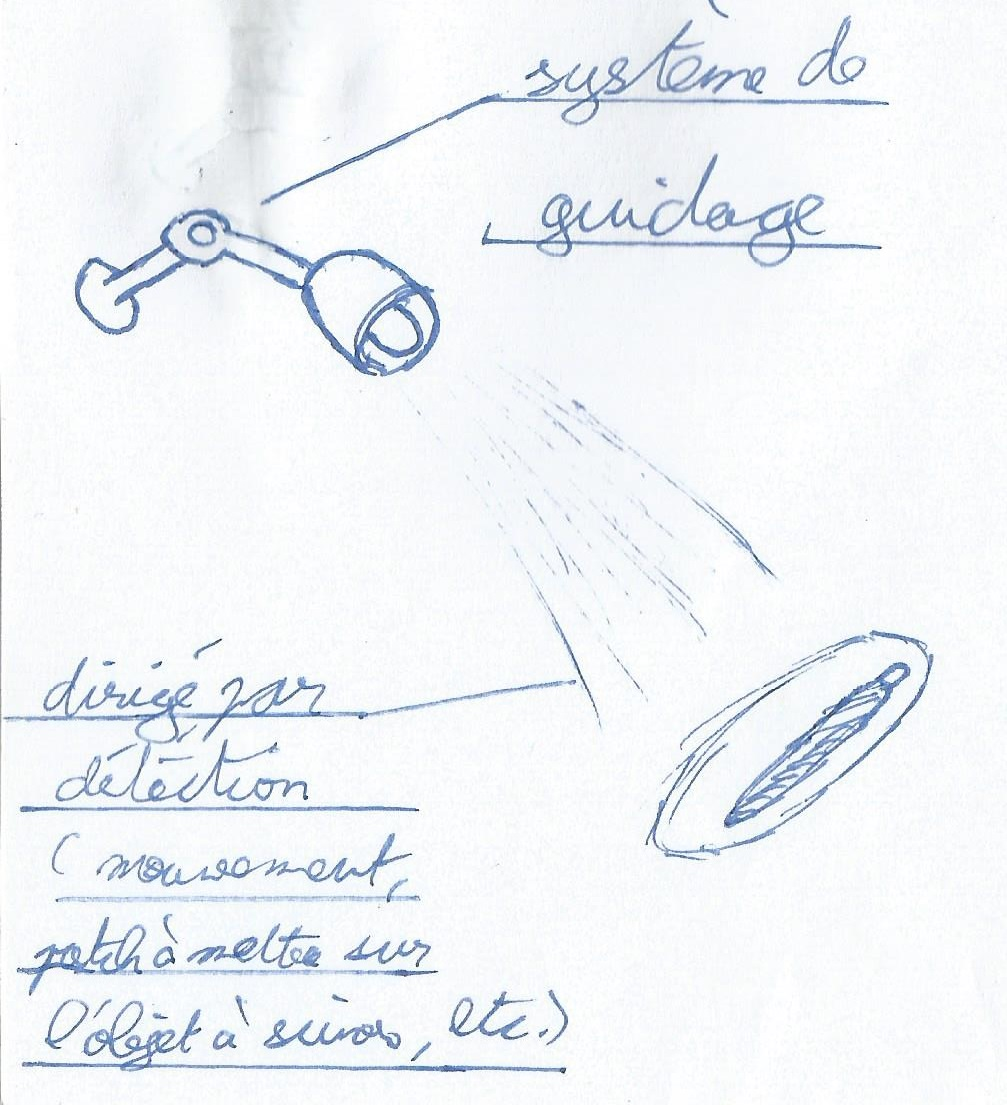 système de
guidage
dirigé par
détéction
( mouvement,
patch à mettre sur
l'objet à suivre, etc.)